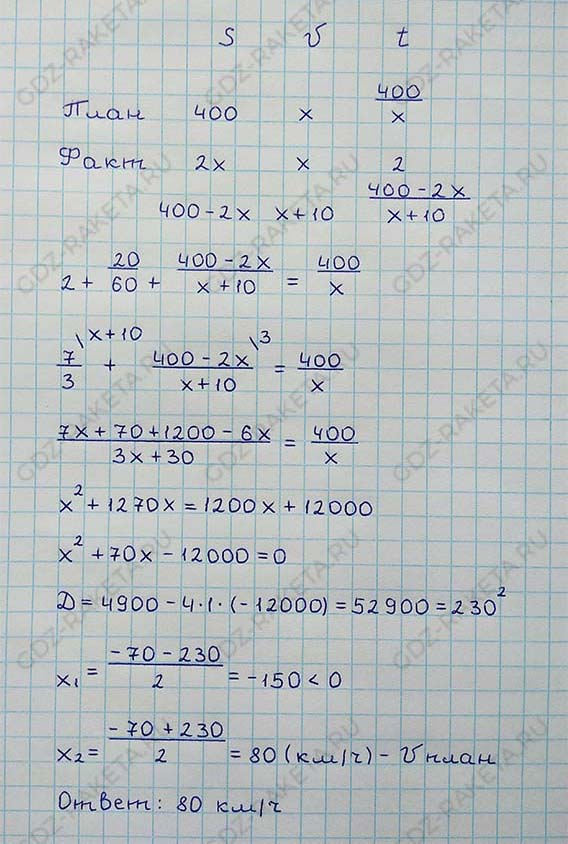 S V t
План 400 x 400/x
Факт 2x x 2
400-2x x+10 (400-2x)/(x+10)
2 + 20/60 + (400-2x)/(x+10) = 400/x
7/3 \x+10 + (400-2x)/(x+10) \3 = 400/x
(7x+70+1200-6x)/(3x+30) = 400/x
x²+1270x=1200x+12000
x²+70x-12000=0
Д=4900-4·1·(-12000)=52900=230²
x₁= (-70-230)/2 =-150<0
x₂= (-70+230)/2 =80 (км/ч)- V план
Ответ: 80 км/ч
GDZ-RAKETA.RU